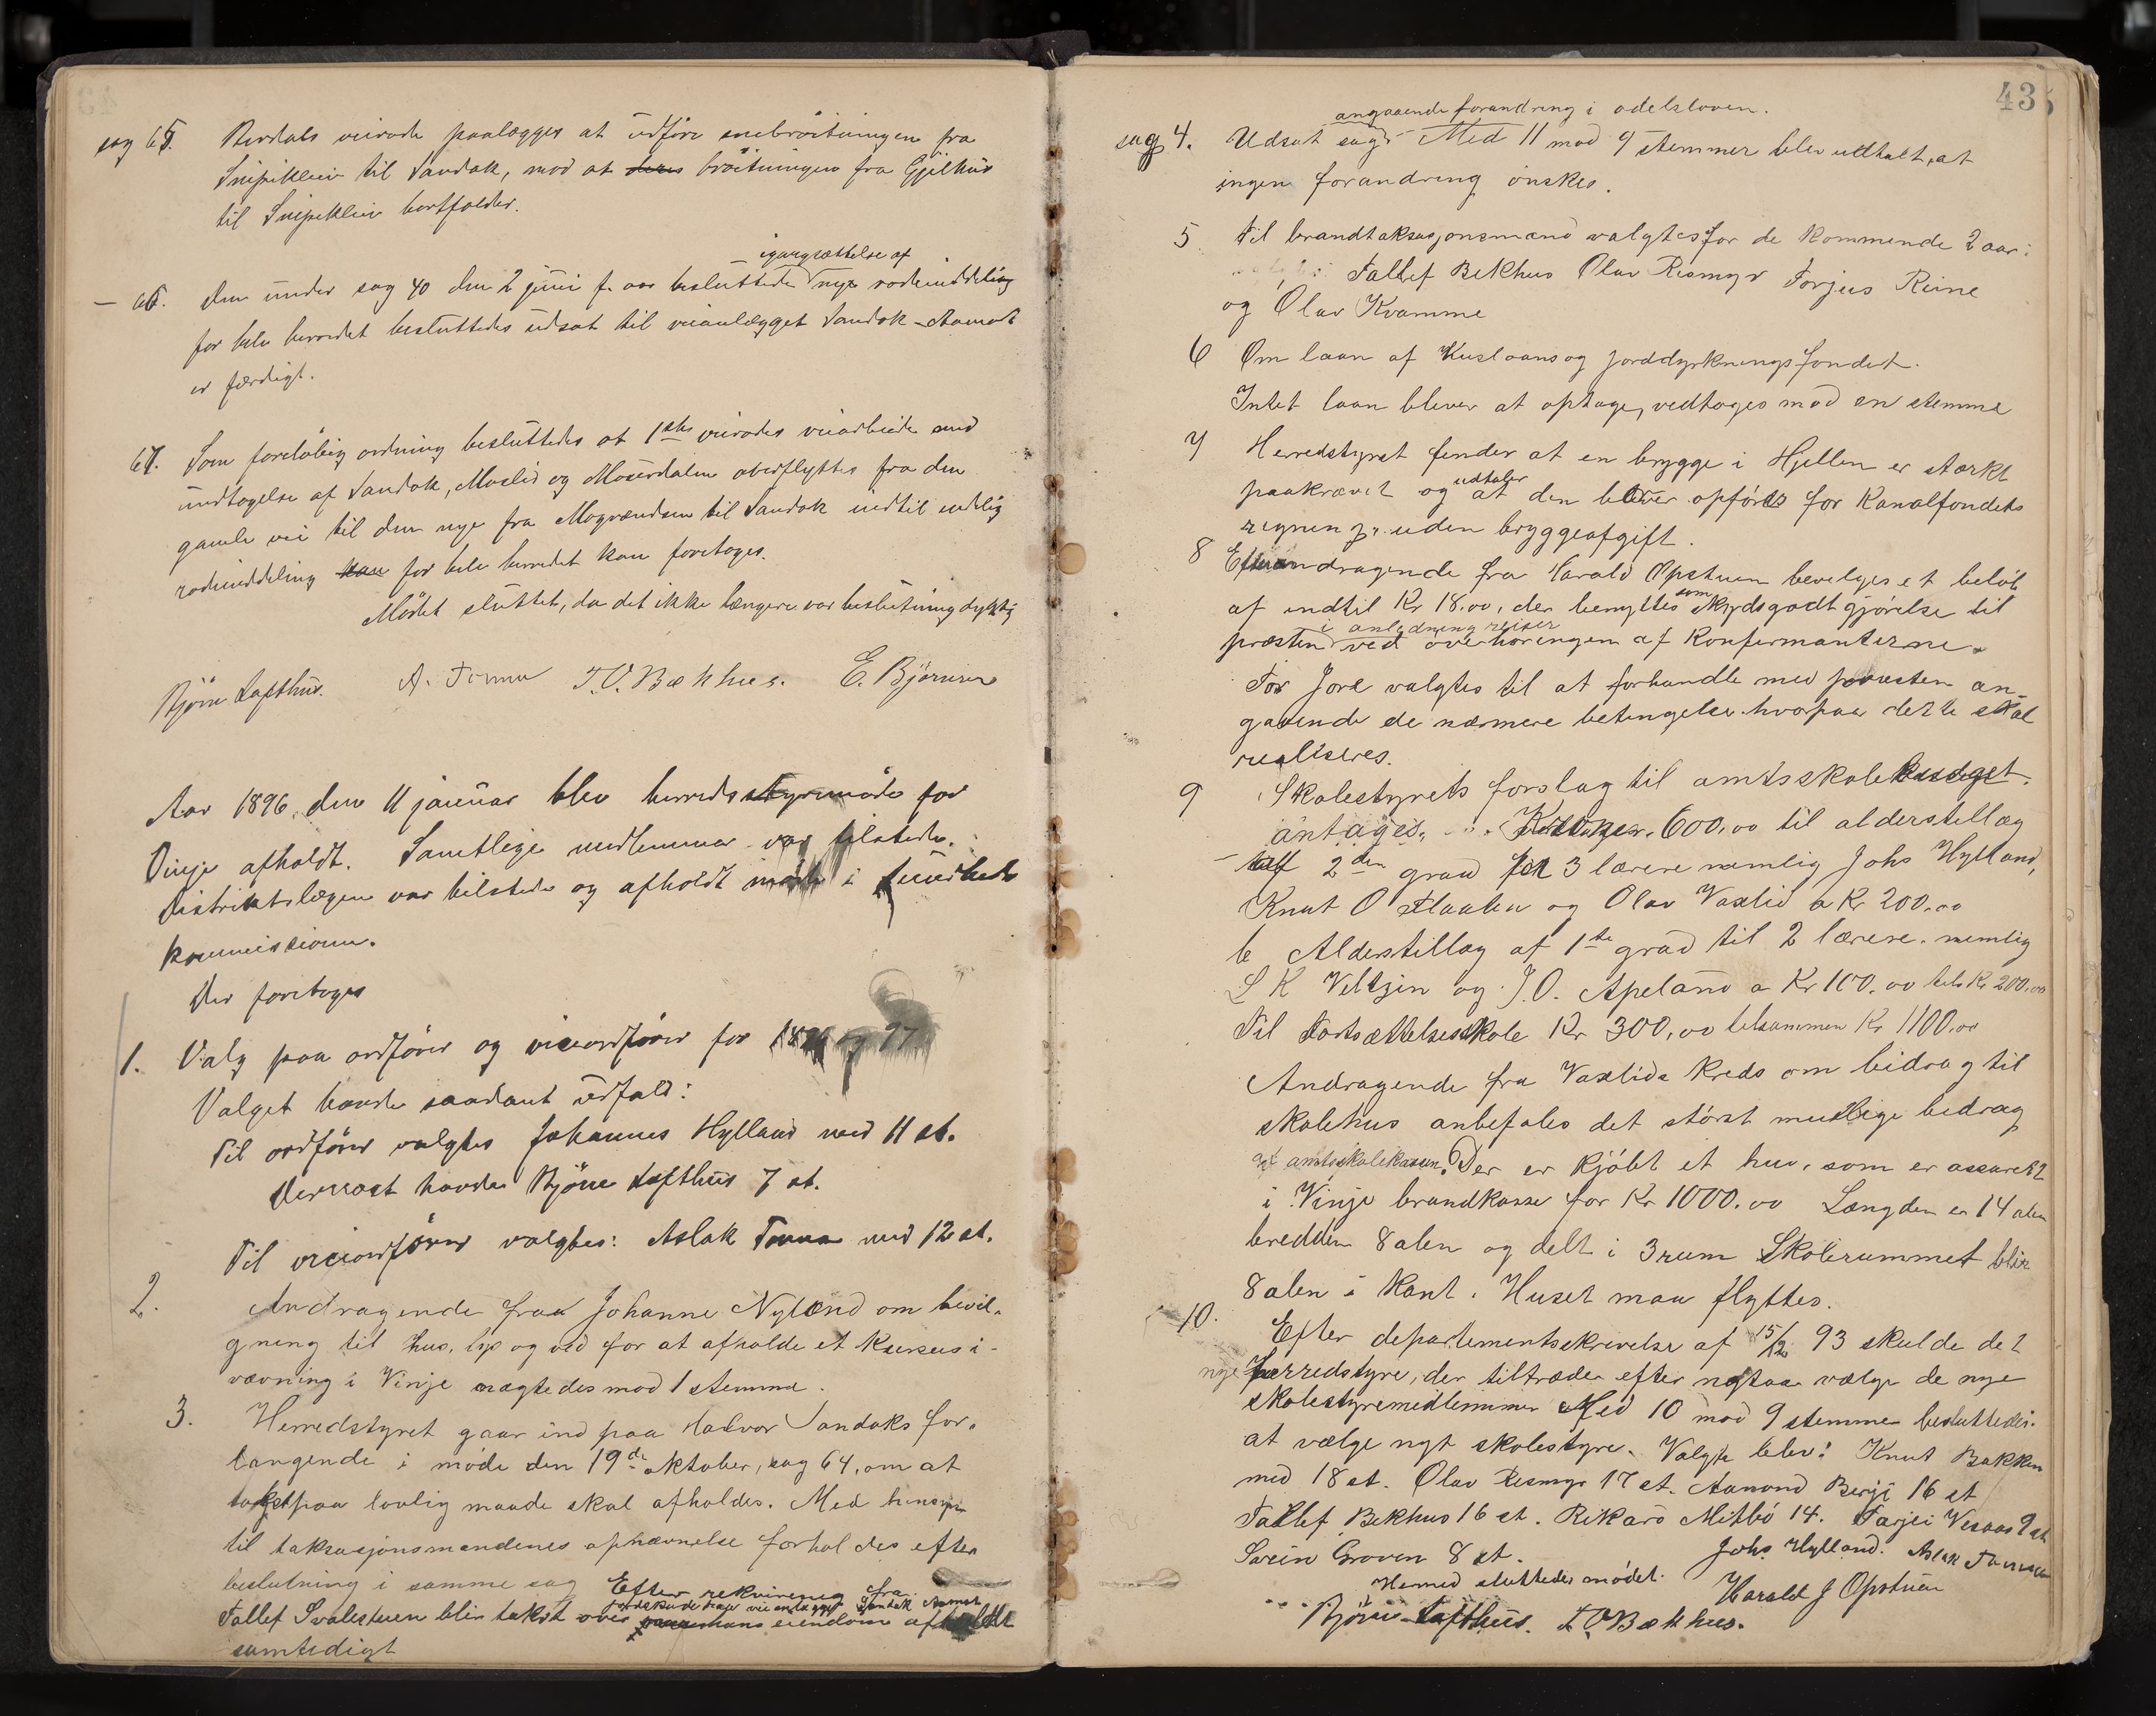 sag 65. Berdals veirode paalægges at udføre snebrøitningen fra
Snipeklein til Sandok, mod at brøitningen fra Gjelhus
til Snipeklein bortfalder.
igangsættelse af
— 66. Den under sag 40 den 2 juni f. aar besluttede nye rodeinddeling
for hele herredet besluttedes udsat til veianlægget Sandok-Aamot
er færdigt.
67. Som foreløbig ordning besluttedes at 1ste veirodes veiarbeide med
undtagelse af Sandok, Moslid og overflyttes fra den
gamle vei til den nye fra Mogrændsen til Sandok indtil endelig
rodeinddeling kan for hele herredet kan foretages.
Mødet sluttet, da det ikke længere var beslutningdygtig
Bjørn Lofthus. A. Tinna T.O. Bækhus. E. Bjørnson
Aar 1896, den 11 januar blev herredsstyremøde for
Vinje afholdt. Samtlige medlemmer var tilstede.
Distriktslægen var tilstede og afholdt møde i sundheds
kommissionen.
Der foretoges
1. Valg paa ordfører og viceordfører for 1896 og 97
Valget havde saadant udfald:
Til ordfører valgtes Johannes Hylland med 11 st.
Dernæst havde Bjørn Lofthus 7 st.
Til viceordfører valgtes: Aslak Tinna med 12 st.
2. Andragende fraa Johanne Nylænd om bevil-
gning til hus, lys og ved for at afholde et kursus i
vævning i Vinje nægtedes mod 1 stemme.
3. Herredstyret gaar ind paa Halvor Sandoks for-
langende i møde den 19de oktober, sag 64, om at
takst paa lovlig maade skal afholdes. Med hensyn
til taksasjonsmendenes opnævnelse forholdes efter
beslutning i samme sag Efter rekvirering fra
veianlægget Sandok Aamot
Tallef Svalestuen blir takst over hans eiendom afholdt
samtidigt
43
angaaende forandring i odelsloven.
sag 4. Udsat sag: Med 11 mod 9 stemmer blev udtalt, at
ingen forandring ønskes.
5 Til brandtaksasjonsmænd valgtes for de kommende 2 aar:
Tallef Bekhus Olav Resmyr Torjus Reine
og Olav Kvamme
6 Om laan af Huslaans og jorddyrkningsfondet.
Intet laan bliver at optage, vedtoges mod en stemme
7 Herredstyret finder at en brygge i Hyllen er stærkt
udtaler
paakrævet og at den bliver opført for Kanalfondets
regnin gr. uden bryggeafgift.
8 Efter andragende fra Harald Opstuen bevilges et beløb
af indtil Kr 18.00, der benyttes som skydsgodtgjørelse til
i anledning reiser
præsten ved overhøringen af konfirmanterne.
Tor Jore valgtes til at forhandle med præsten an-
gaaende de nærmere betingelser hvorpaa dette skal
realiseres.
9 Skolestyrets forslag til amtsskolebudget
antages. Kroner 600,00 til alderstillæg
af 2den grad for 3 lærere nemlig Johs Hylland,
Knut O Flaaten og Olav Vaxlid a Kr 200.00
b Alderstillæg af 1ste grad til 2 lærere. nemlig
S K Veltzin og J.O. Apeland a Kr 100.00 tils Kr 200.00
Til Fortsættelsesskole Kr 300,00 tilsammen Kr 1100.00
Andragende fra Vaxlids Kreds om bidrag til
skolehus anbefales det størst mullige bidrag
af amtsskolekassen. Der er kjøbt et hus, som er assureret
i Vinje brandkasse for Kr 1000.00 Længden er 14 alen
bredden 8 alen og delt i 3 rum Skolerummet blir
8 alen i kant. Huset maa flyttes.
10. Efter departementsskrivelse af 15/12 93 skulde det
nye herredstyre, der tiltræder efter nytaar vælge de nye
skolestyremedlemmer Med 10 mod 9 stemmer besluttedes
at vælge nyt skolestyre. Valgte blev: Knut Bakken
med 18 st. Olav Resmyr 17 st. Aanond Berge 16 st
Tallef Bekhus 16 st. Rikard Mitbø 14. Tarjei Vesaas 9 st
Svein Groven 8 st. Johs Hylland. Aslak Tinna
Hermed sluttedes mødet. Harald J Opstuen
Bjørn Lofthus. T O Bækhus.